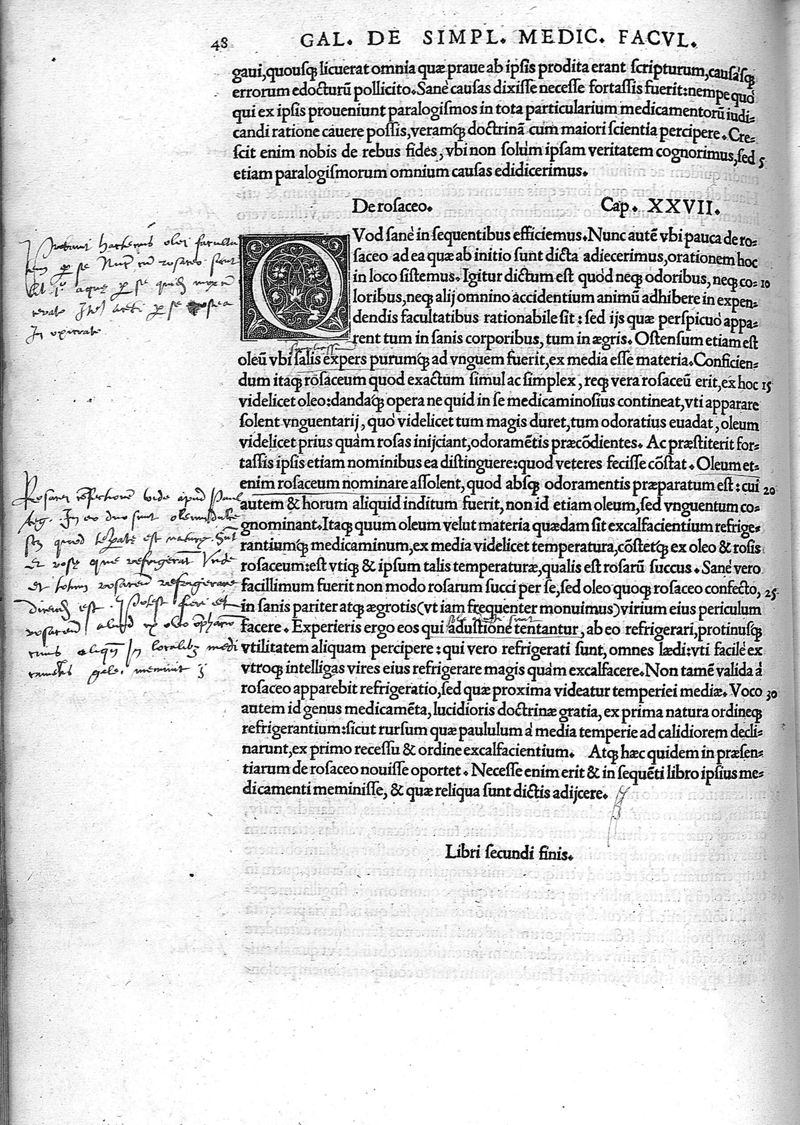 48 GAL. DE SIMPL. MEDIC. FACVL.
gaui, quousq; licuerat omnia quæ praue ab ipsis prodita erant scripturum, causasq;
errorum edocturũ pollicito. Sane causas dixisse necesse fortassis fuerit: nempe quo
qui ex ipsis proueniunt paralogismos in tota particularium medicamentorũ iudi=
candi ratione cauere possis, veramq; doctrinã cum maiori scientia percipere. Cre=
scit enim nobis de rebus fides, vbi non solùm ipsam veritatem cognorimus, sed 5
etiam paralogismorum omnium causas edidicerimus.
De rosaceo. Cap. XXVII.
QVod sanè in sequentibus efficiemus. Nunc autẽ vbi pauca de ro=
saceo ad ea quæ ab initio sunt dicta adiecerimus, orationem hoc
in loco sistemus. Igitur dictum est quòd neq; odoribus, neq; co= 10
loribus, neq; alij omnino accidentium animũ adhibere in expen=
dendis facultatibus rationabile sit: sed ijs quæ perspicuò appa=
rent tum in sanis corporibus, tum in ægris. Ostensum etiam est
oleũ vbi salis expers purumq; ad vnguem fuerit, ex media esse materia. Conficien=
dum itaq; rosaceum quod exactum simul ac simplex, req; vera rosaceũ erit, ex hoc 15
videlicet oleo: dandaq; opera ne quid in se medicaminosius contineat, vti apparare
solent vnguentarij, quò videlicet tum magis duret, tum odoratius euadat, oleum
videlicet prius quàm rosas inijciant, odoramẽtis præcõdientes. Ac præstiterit for=
tassis ipsis etiam nominibus ea distinguere: quod veteres fecisse cõstat. Oleum et=
enim rosaceum nominare assolent, quod absq; odoramentis præparatum est: cui 20
autem & horum aliquid inditum fuerit, non id etiam oleum, sed vnguentum co=
gnominant. Itaq; quum oleum velut materia quædam sit excalfacientium refrige=
rantiumq; medicaminum, ex media videlicet temperatura, cõstetq; ex oleo & rosis
rosaceum: est vtiq; & ipsum talis temperaturæ, qualis est rosarũ succus. Sanè vero
facillimum fuerit non modo rosarum succi per se, sed oleo quoq; rosaceo confecto, 25
in sanis pariter atq; ægrotis (vt iam frequenter monuimus) virium eius periculum
facere. Experieris ergo eos qui adustione tentantur, ab eo refrigerari, protinusq;
vtilitatem aliquam percipere: qui vero refrigerati sunt, omnes lædi: vti facilè ex
vtroq; intelligas vires eius refrigerare magis quàm excalfacere. Non tamẽ valida à
rosaceo apparebit refrigeratio, sed quæ proxima videatur temperiei mediæ. Voco 30
autem id genus medicamẽta, lucidioris doctrinæ gratia, ex prima natura ordineq;
refrigerantium: sicut rursum quæ paululum à media temperie ad calidiorem decli=
narunt, ex primo recessu & ordine excalfacientium. Atq; hæc quidem in præsen=
tiarum de rosaceo nouisse oportet. Necesse enim erit & in sequẽti libro ipsius me=
dicamenti meminisse, & quæ reliqua sunt dictis adijcere.
Libri secundi finis.